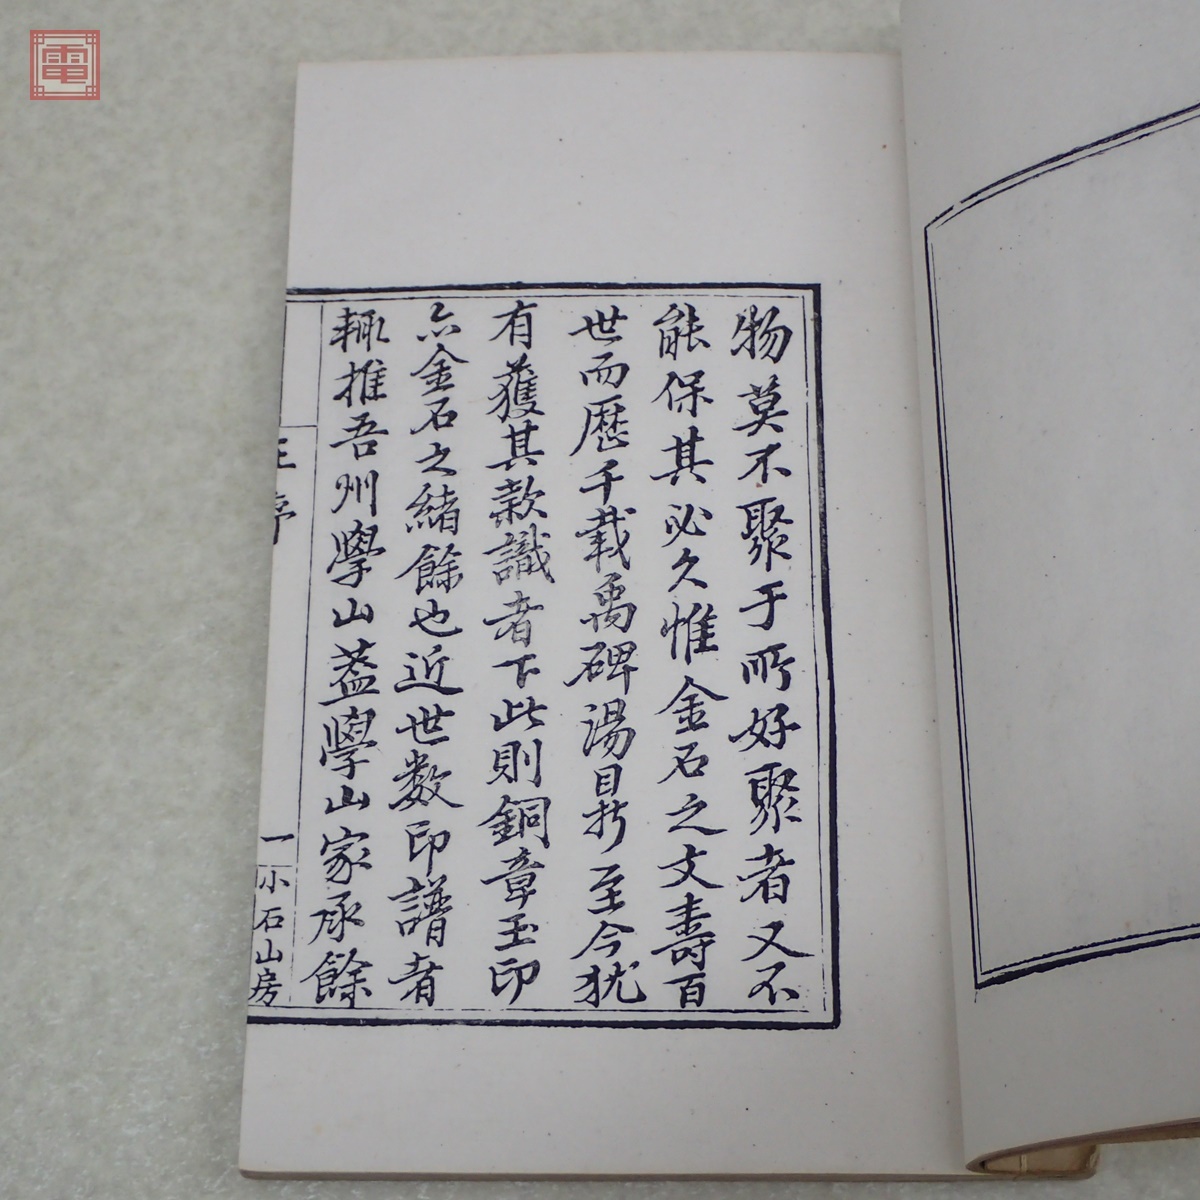 電
物莫不聚于所好聚者又不
能保其必久惟金石之文壽百
世而歷千載禹碑湯𥁕至今犹
有獲其款識者下此則銅章玉印
亦金石之緒餘也近世数印譜者
輙推吾州學山葢學山家承餘
序
一
小石山房